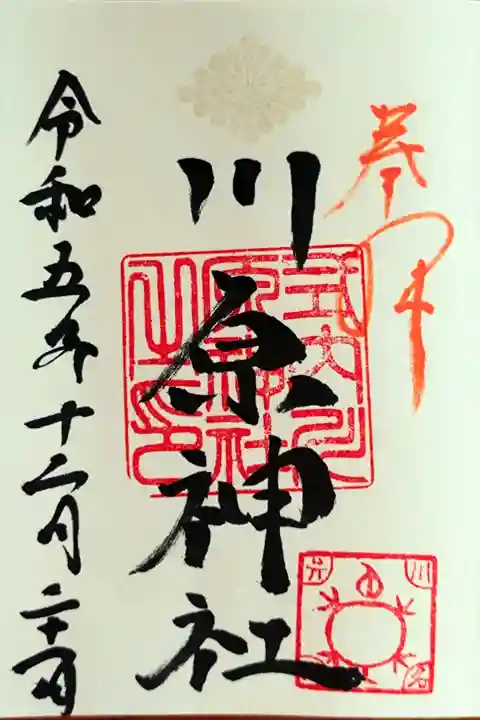 奉拝
川原神社
式内川
原神社
之印
令和五年十二月二十一日
川